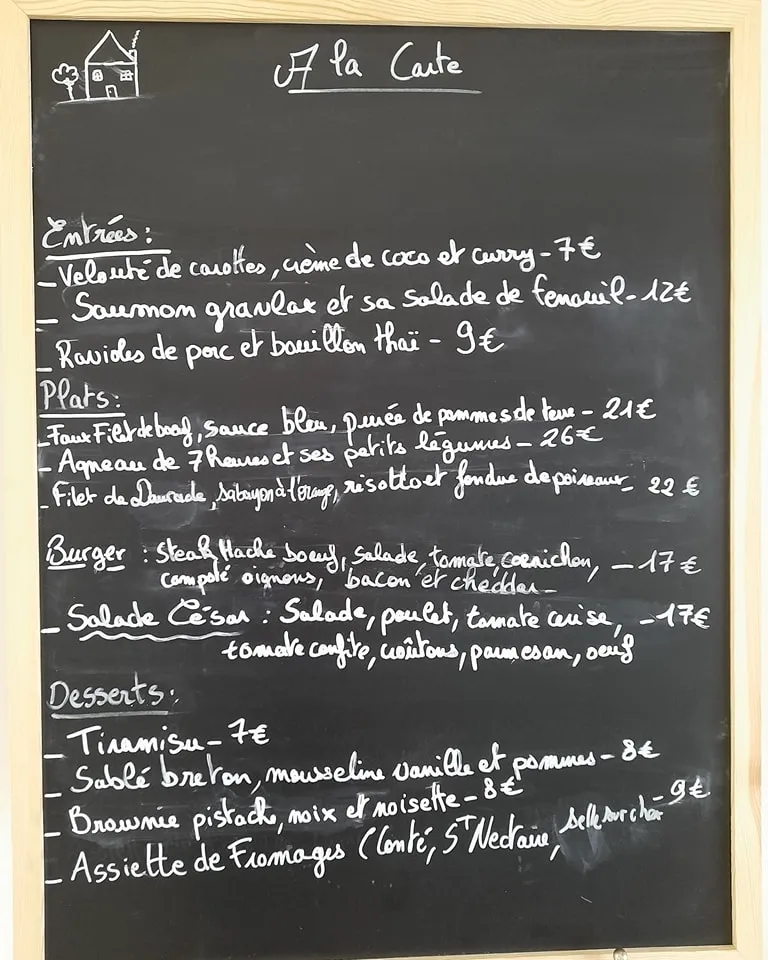 A la Carte
Entrées :
- Velouté de carottes, crème de coco et curry - 7€
- Saumon gravlax et sa salade de fenouil - 12€
- Ravioles de porc et bouillon thaï - 9€
Plats :
- Faux Filet de boeuf, sauce bleu, purée de pommes de terre - 21€
- Agneau de 7 Heures et ses petits légumes - 26€
- Filet de Daurade, sabayon à l'orange, risotto et fondue de poireaux - 22 €
Burger : Steak Haché boeuf, salade, tomate, cornichon, - 17 €
compoté oignons, bacon et cheddar -
- Salade César : Salade, poulet, tomate cerise, - 17€
tomate confite, croûtons, parmesan, oeuf
Desserts :
- Tiramisu - 7€
- Sablé breton, mousseline vanille et pommes - 8€
- Brownie pistache, noix et noisette - 8€
- Assiette de Fromages (Comté, St Nectaire, selle sur cher - 9€